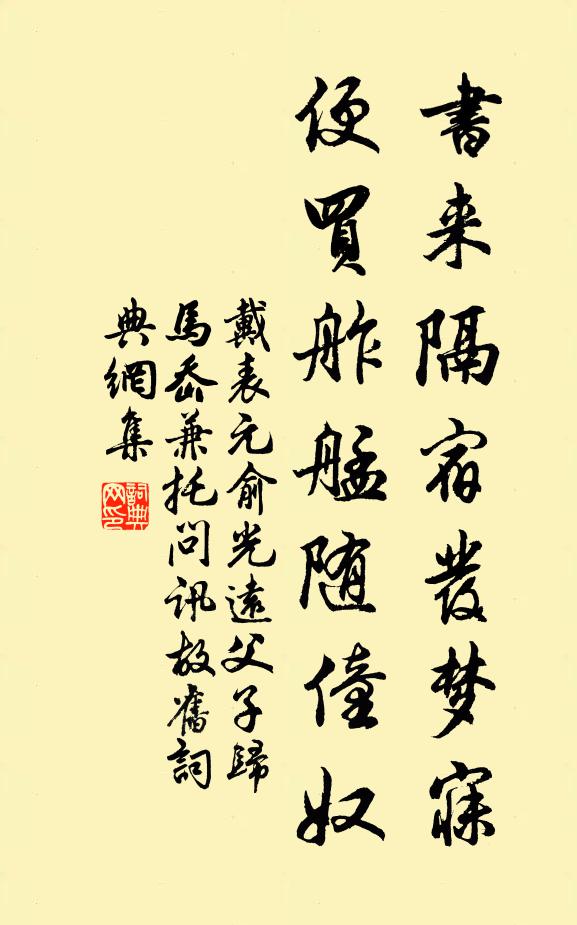 書来隔宿發梦寐
便買舴艋随僮奴
戴表元俞光遠父子歸
馬岙兼托問訊故舊詞
典網集
詞典
网印